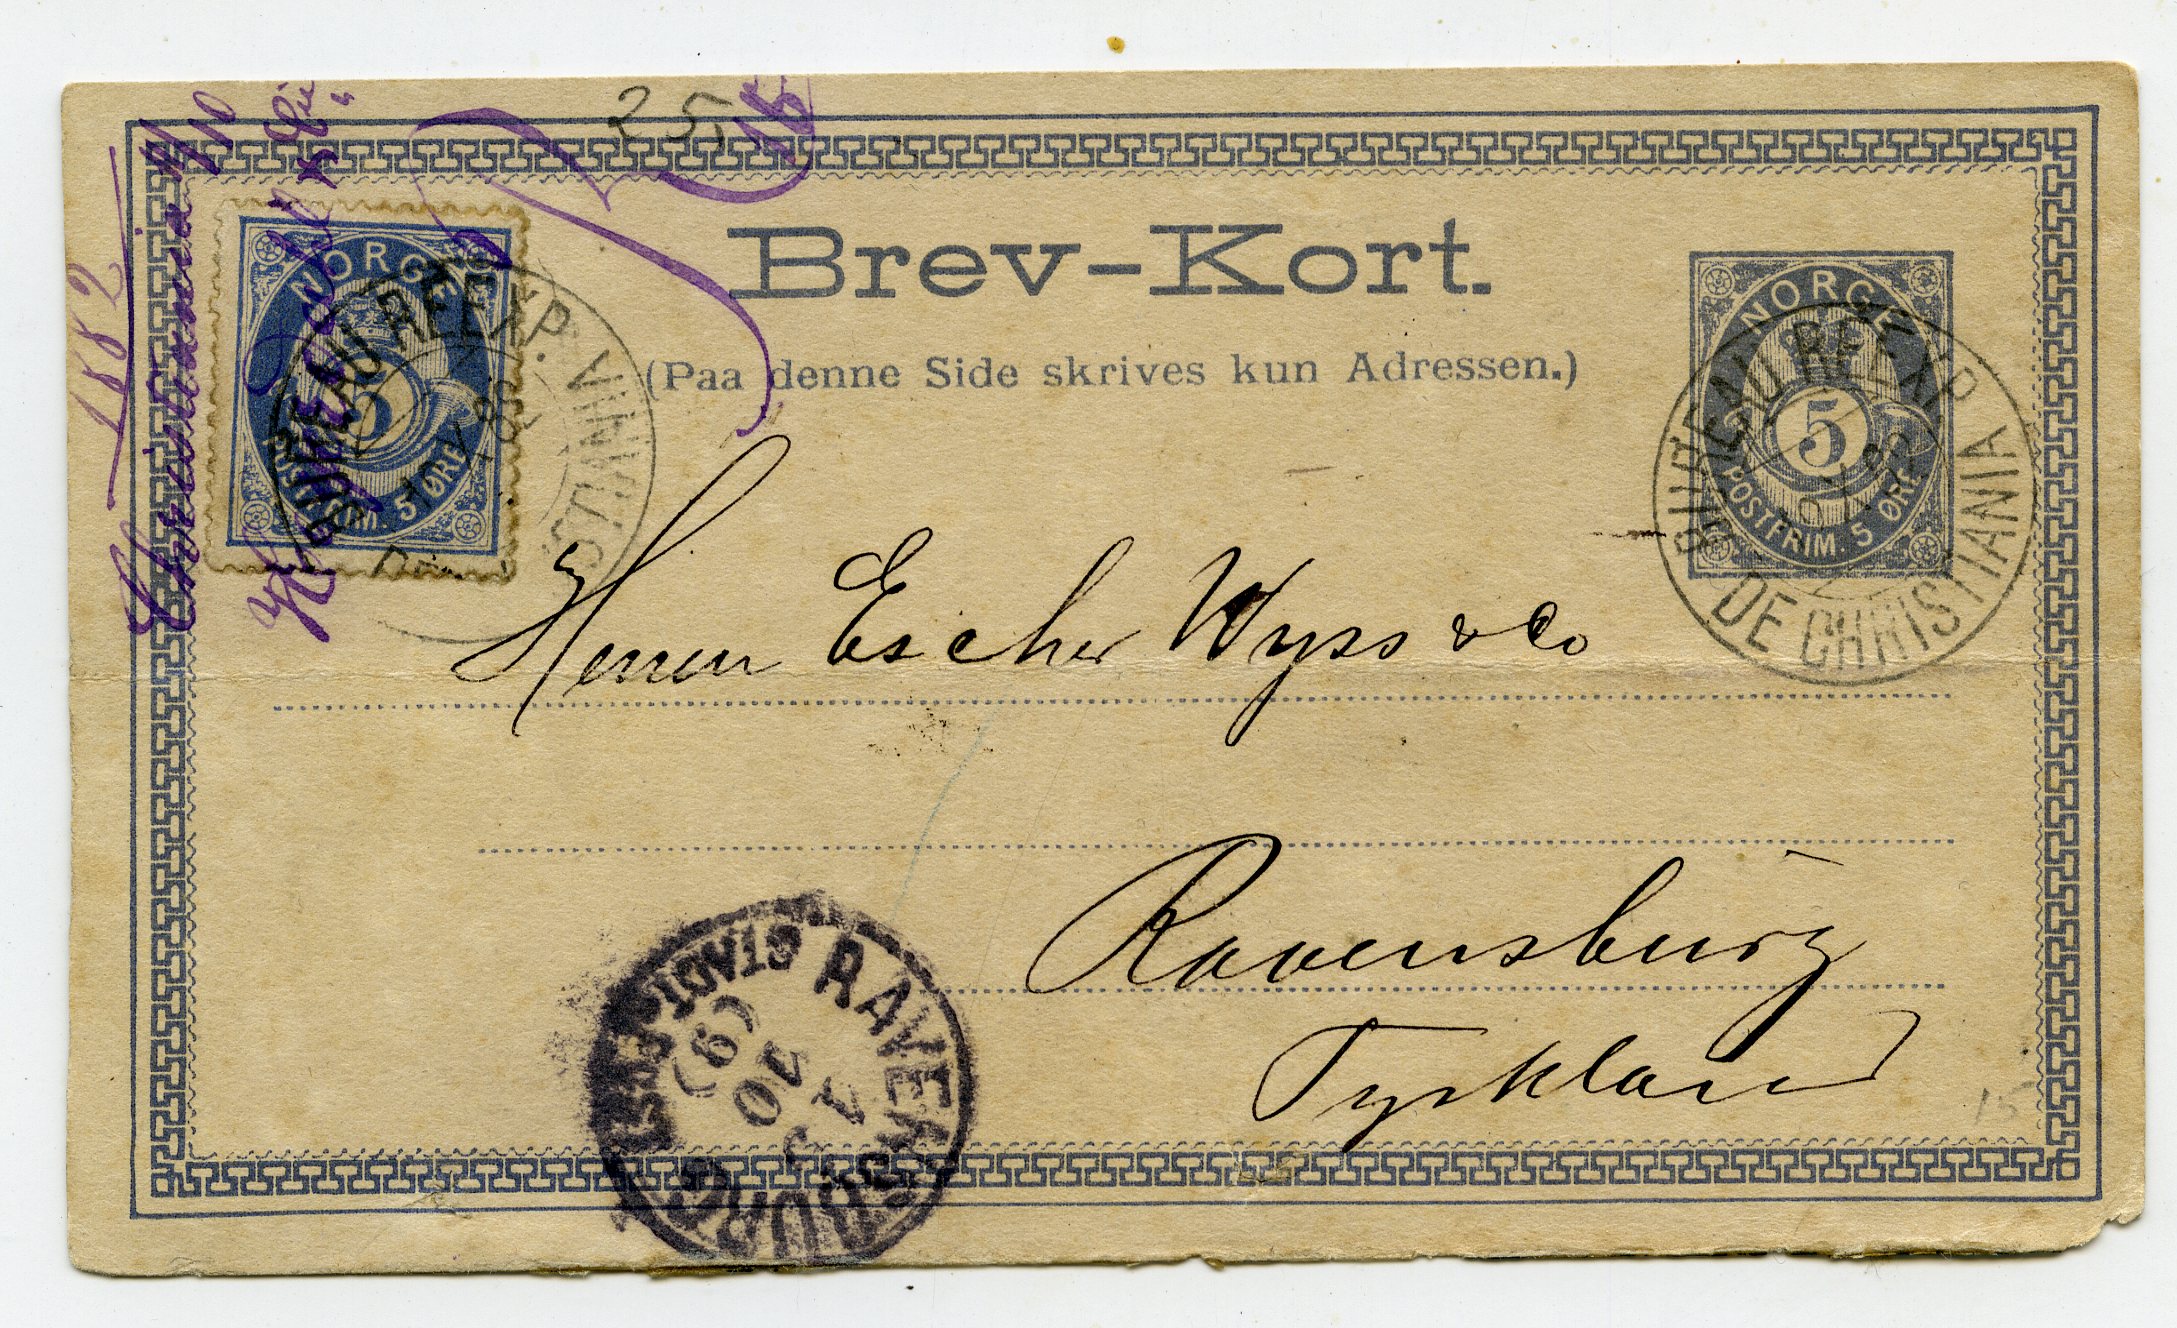 25,
Brev-Kort.
(Paa denne Side skrives kun Adressen.)
NORGE
5
POSTFRIM. 5 ØRE
BUREAU REEXP. DE CHRISTIANIA
NORGE
5
POSTFRIM. 5 ØRE
BUREAU REEXP. DE CHRISTIANIA
1882
Christiania
Herren Escher Wyss & Co
Ravensburg
Tyskland
RAVENSBURG
STADTPOST
(9)
10
15